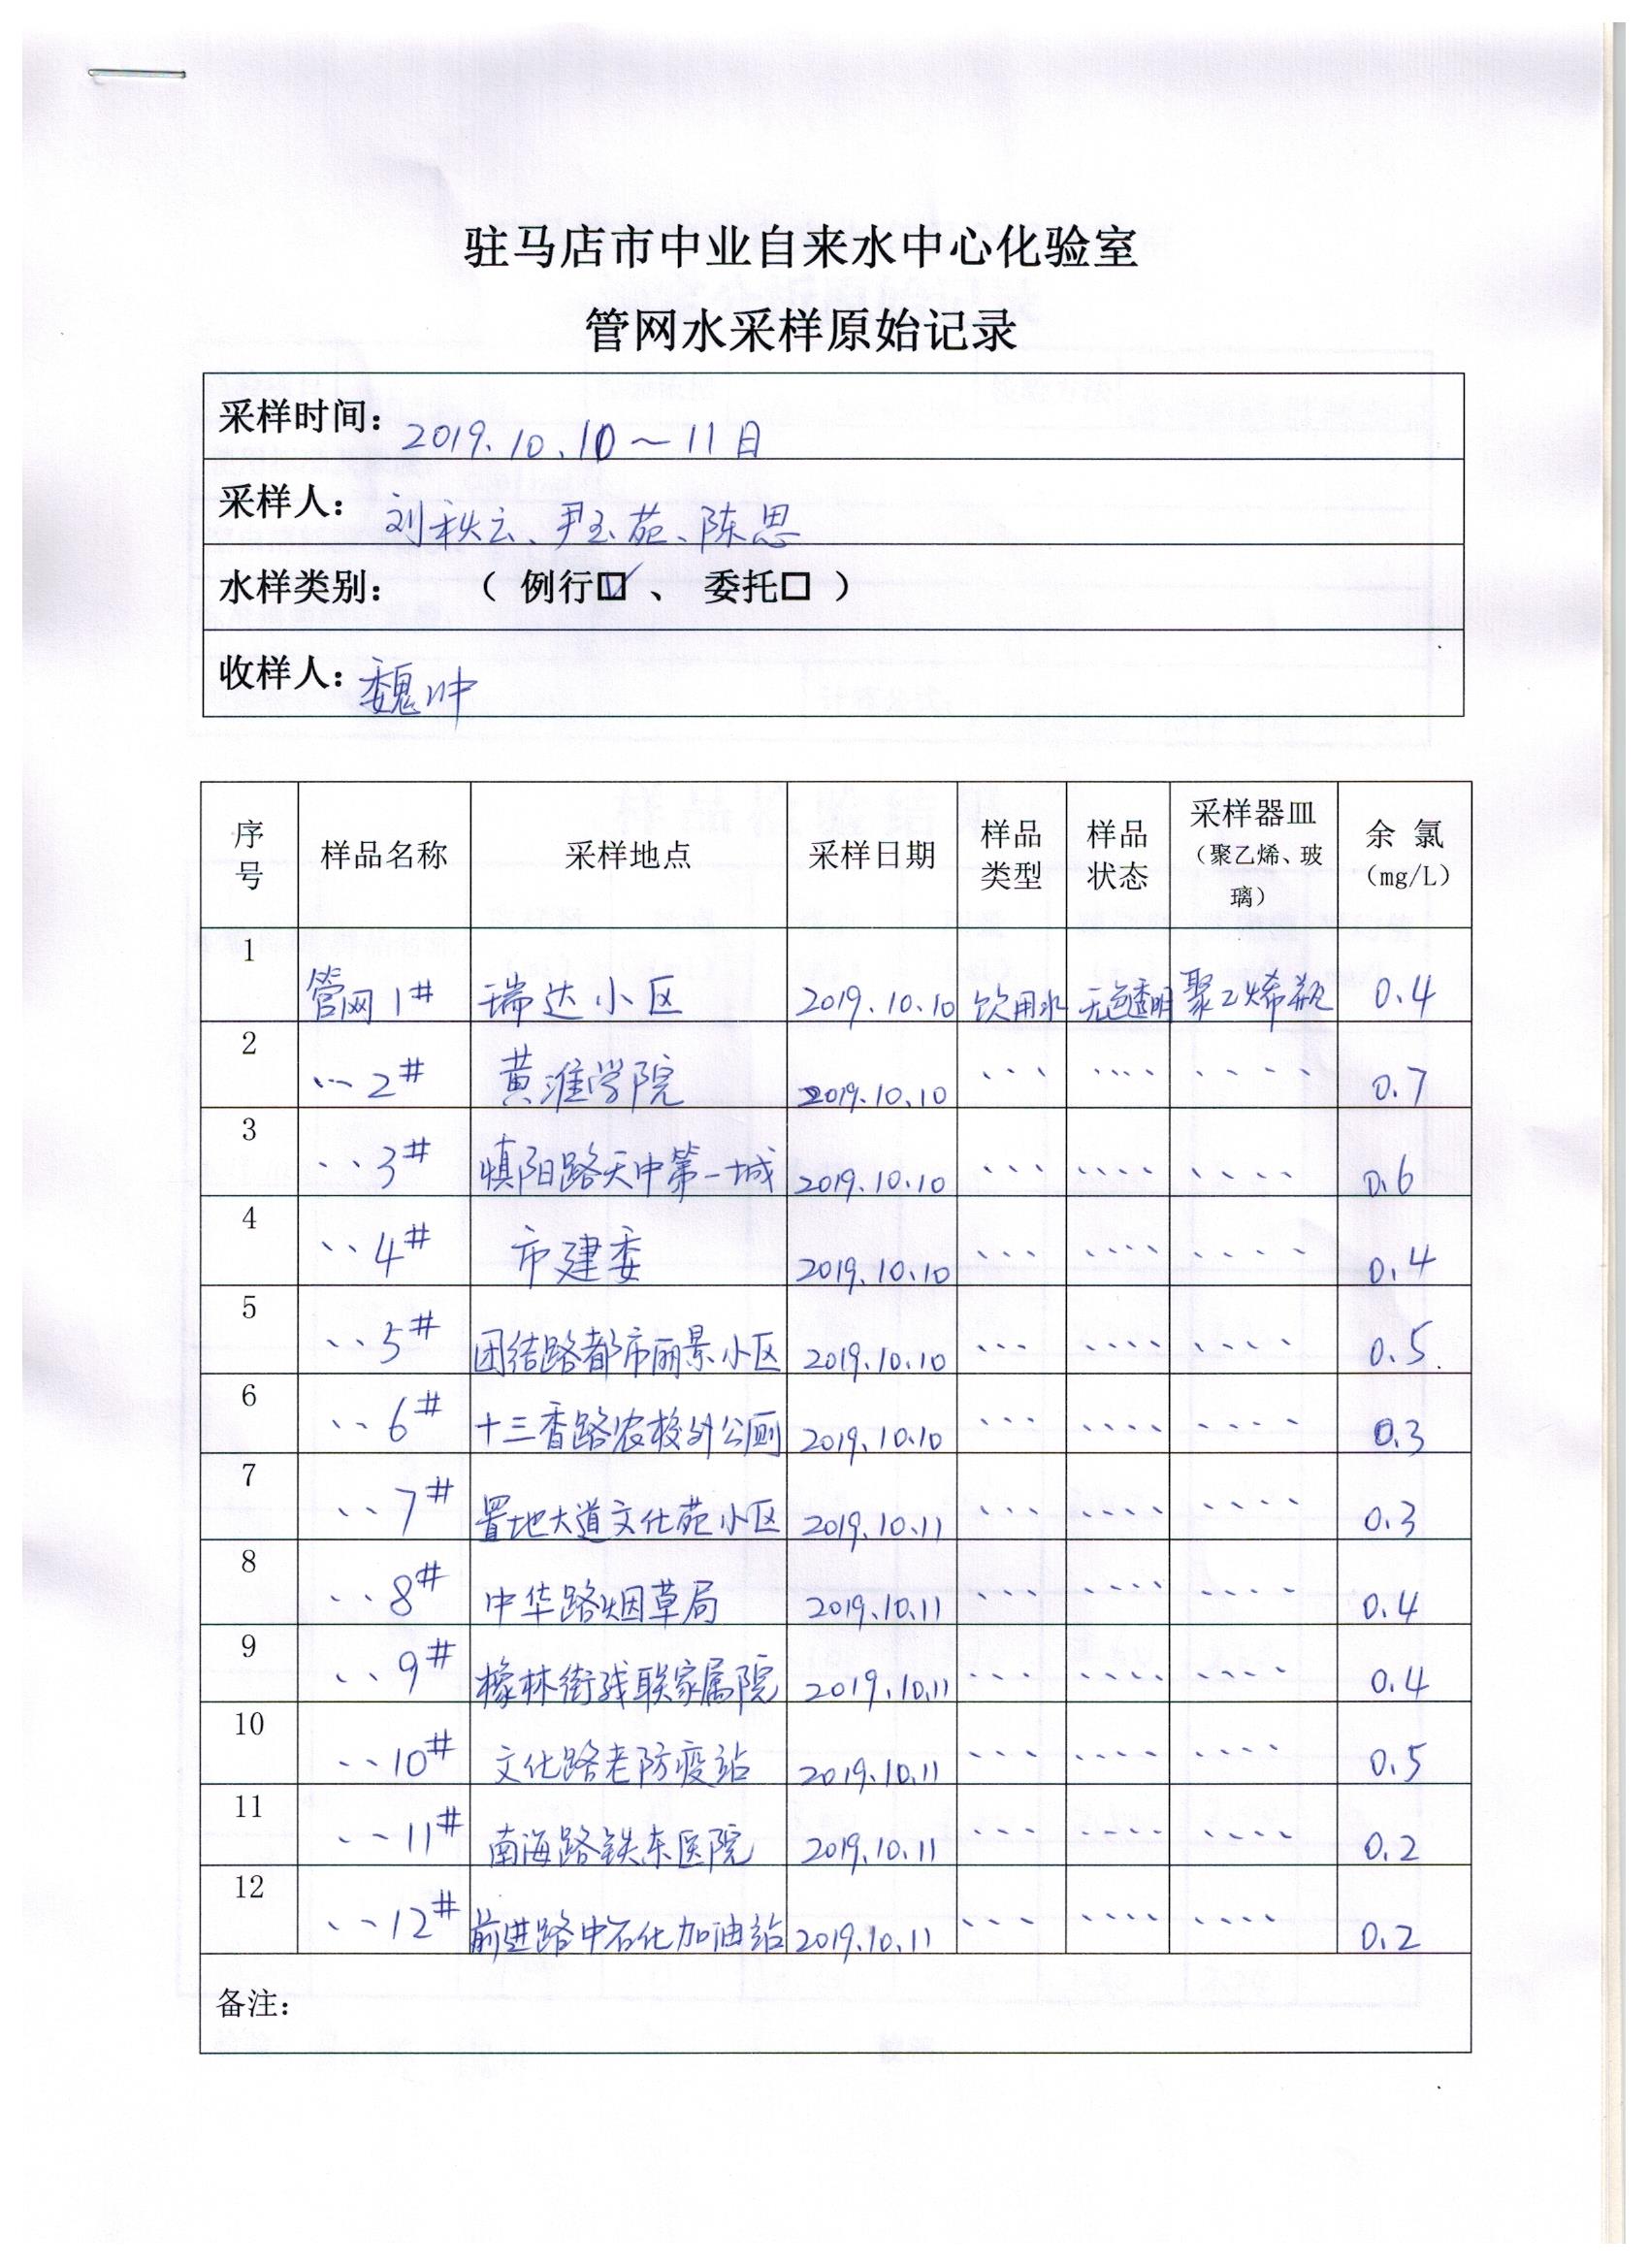 驻马店市中业自来水中心化验室
管网水采样原始记录
采样时间: 2019.10.10～11日
采样人: 刘秋云、尹玉苑、陈思
水样类别: （ 例行☑、 委托□ ）
收样人: 魏冲
序号 样品名称 采样地点 采样日期 样品类型 样品状态 采样器皿（聚乙烯、玻璃） 余氯（mg/L）
1 管网1# 瑞达小区 2019.10.10 饮用水 无色透明 聚乙烯瓶 0.4
2 、、、2# 黄淮学院 2019.10.10 、、、 、、、、 、、、、 0.7
3 、、3# 慎阳路天中第一城 2019.10.10 、、、 、、、、 、、、、 0.6
4 、、4# 市建委 2019.10.10 、、、 、、、、 、、、、 0.4
5 、、5# 团结路都市丽景小区 2019.10.10 、、、 、、、、 、、、、 0.5
6 、、6# 十三香路农校外公厕 2019.10.10 、、、 、、、、 、、、、 0.3
7 、、7# 置地大道文化苑小区 2019.10.11 、、、 、、、、 、、、、 0.3
8 、、8# 中华路烟草局 2019.10.11 、、、 、、、、 、、、、 0.4
9 、、9# 橡林街残联家属院 2019.10.11 、、、 、、、、 、、、、 0.4
10 、、10# 文化路老防疫站 2019.10.11 、、、、 、、、、 、、、、 0.5
11 、、11# 南海路铁东医院 2019.10.11 、、、 、、、、 、、、、 0.2
12 、、12# 前进路中石化加油站 2019.10.11 、、、 、、、、 、、、、 0.2
备注: